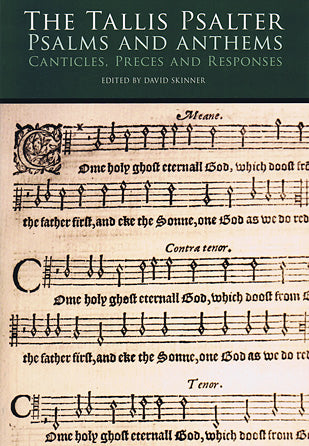 THE TALLIS PSALTER
PSALMS AND ANTHEMS
CANTICLES, PRECES AND RESPONSES
EDITED BY DAVID SKINNER
Meane.
COme holy ghost eternall God, which doost from
the father first, and eke the Sonne, one God as we do red
Contra tenor.
COme holy ghost eternall God, which doost from G
the father first, and eke the Sonne, one God as we do red
Tenor.
COme holy ghost eternall God, which doost from G